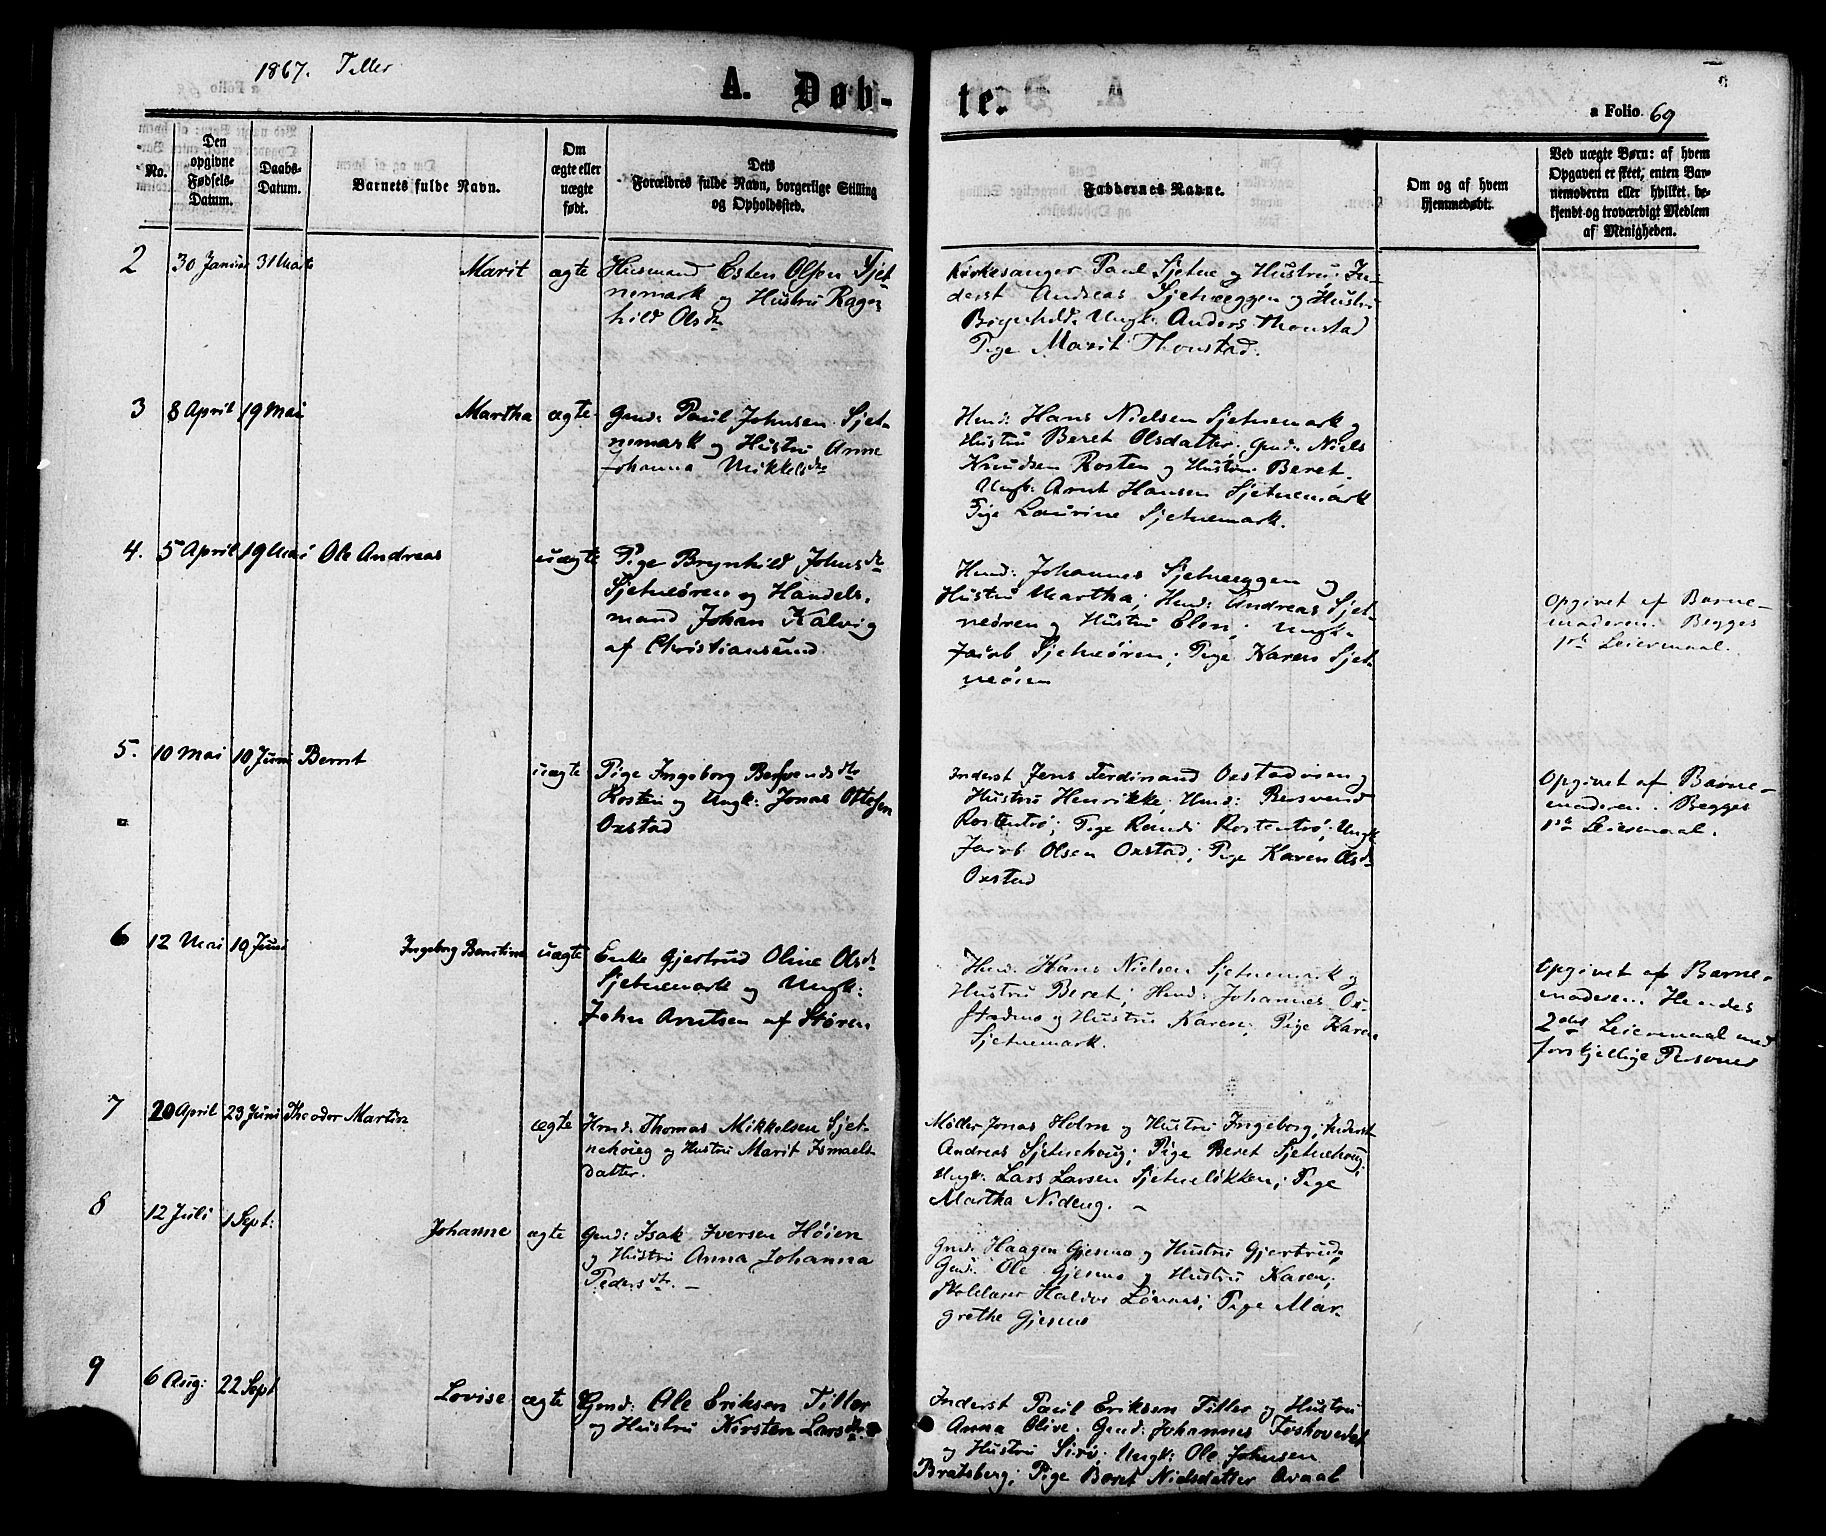 1867. Tiller
A. Døb-
te.
a Folio 69
No.
Den opgivne Fødsels-Datum.
Daabs-Datum.
Barnets fulde Navn.
Om ægte eller uægte født.
Dets Forældres fulde Navn, borgerlige Stilling og Opholdssted.
Faddernes Navne.
Om og af hvem hjemmedøbt.
Ved uægte Børn: af hvem Opgaven er skeet, enten Barnemoderen eller hvilket bekjendt og troværdigt Medlem af Menigheden.
2 30 Januar 31 Marts Marit ægte
Husmand Esten Olsen Sjet-
nemark og Hustru Ragn-
hild Olsdtr
Kirkesanger Paul Sjetne og Hustru; In-
derst Andreas Sjetneeggen og Hustru
Brynhild. Ungk: Anders Thonstad
Pige Marit Thonstad.
3 8 April 19 Mai Martha ægte
Gmd: Paul Johnsen Sjet-
nemark og Hustru Anne
Johanna Mikkelsdtr
Hmd: Hans Nielsen Sjetnemark og
Hustru Beret Olsdatter; Gmd: Niels
Knudsen Rosten og Hustru Beret.
Ungk: Arnt Hansen Sjetnemark
Pige Laurine Sjetnemark.
4. 5 April 19 Mai Ole Andreas uægte
Pige Brynhild Johnsdtr
Sjetneøren og Handels-
mand Johan Kalvig
af Christiansund
Hmd: Johannes Sjetneeggen og
Hustru Martha; Hmd: Andreas Sjet-
neøren og Hustru Elen; Ungk:
Jacob Sjetneøren; Pige Karen Sjet-
neøien
Opgivet af Barne-
moderen. Begges
1ste Leiermaal.
5. 10 Mai 10 Juni Bernt uægte
Pige Ingeborg Bersvendsdtr
Rosten og Ungk: Jonas Ottesen
Oxstad
Inderst Jens Ferdinand Oxstadøien og
Hustru Henrikke, Hmd: Bersvend
Rostentrø; Pige Randi Rostentrø; Ungk
Jacob Olsen Oxstad; Pige Karen Olsdtr
Oxstad
Opgivet af Barne-
moderen. Begges
1ste Leiermaal.
6 12 Mai 19 Juni Ingeborg Berntine uægte
Enke Gjertrud Oline Olsdtr
Sjetnemark og Ungk:
John Arntsen af Støren
Hmd: Hans Nielsen Sjetnemark og
Hustru Beret; Hmd: Johannes Ox-
stadmo og Hustru Karen; Pige Karen
Sjetnemark.
Opgivet af Barne-
moderen. Hendes
2det Leiermaal med
forskjellige Personer
7 20 April 23 Juni Theodor Martin ægte
Hmd: Thomas Mikkelsen Sjet-
nehoug og Hustru Marit Ismaels-
datter.
Møller Jonas Holm og Hustru Ingeborg; Inderst
Andreas Sjetnehoug; Pige Beret Sjetnehoug;
Ungk: Lars Larsen Sjetneløkken; Pige
Martha Nideng. –
8 12 Juli 1 Sept: Johanne ægte
Gmd: Isak Iversen Høien
og Hustru Anna Johanna
Pedersdtr. –
Gmd: Haagen Gjesmo og Hustru Gjertrud;
Gmd: Ole Gjesmo og Hustru Karen;
Skolelærer Haldor Løvaas; Pige Mar-
grethe Gjesmo
9 6 Aug: 22 Sept Lovise ægte
Gmd: Ole Eriksen Tiller
og Hustru Kirsten Larsdtr
Inderst Paul Eriksen Tiller og Hustru
Anna Olive. Gmd: Johannes Foshovedet
og Hustru Siri; Ungk: Ole Johnsen
Bratsberg; Pige Beret Nielsdatter Aaraal